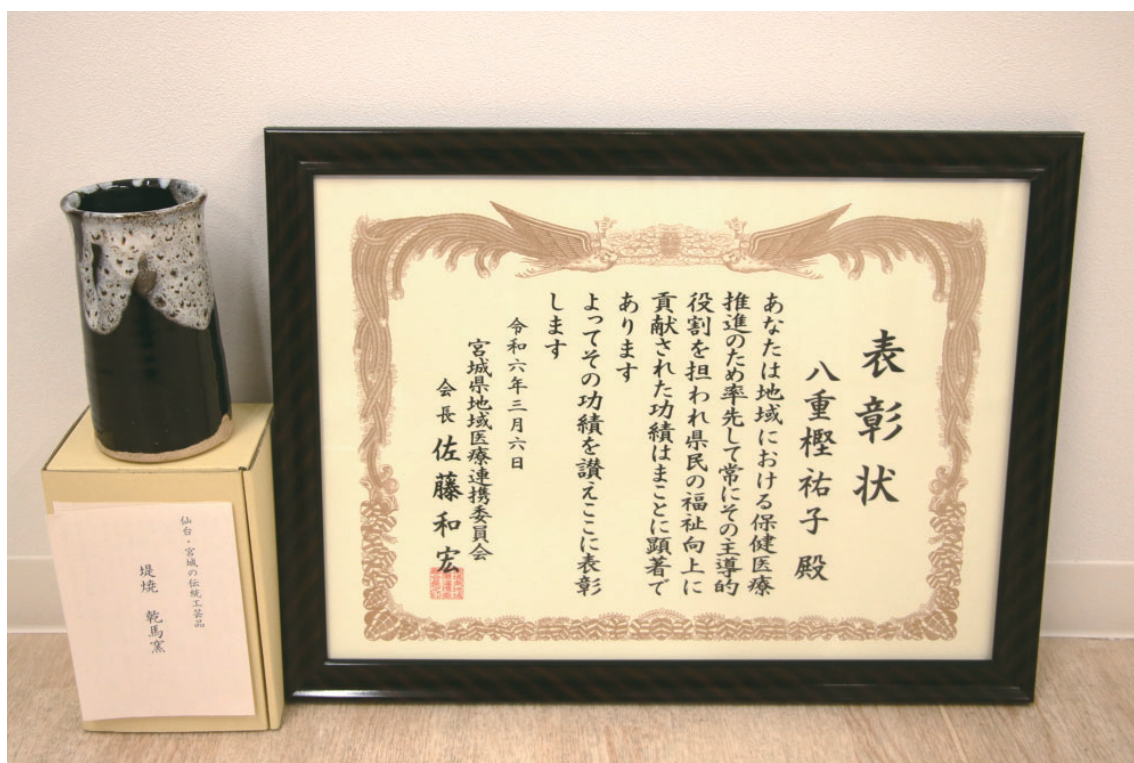 表彰状
八重樫祐子殿
あなたは地域における保健医療
推進のため率先して常にその主導的
役割を担われ県民の福祉向上に
貢献された功績はまことに顕著で
あります
よってその功績を讃えここに表彰
します
令和六年三月六日
宮城県地域医療連携委員会
会長 佐藤和宏
仙台・宮城の伝統工芸品
堤焼 乾馬窯